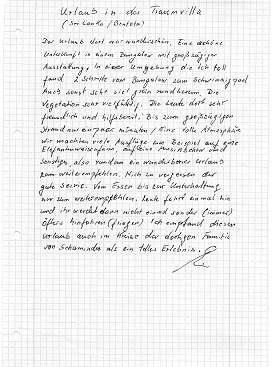 Urlaub in der Traumvilla
(Sri Lanka / Bentota)
Der Urlaub dort war wunderschön. Eine schöne
Unterkunft in einem Bungalow mit großzügiger
Ausstattung, in einer Umgebung die ich toll
fand 2 Schritte vom Bungalow zum Schwimmingpool
Auch sonst sehr viel grün rundherum. Die
Vegetation sehr vielfältig. Die Leute dort sehr
freundlich und hilfsbereit. Bis zum großzügigen
Strand nur ein paar minuten / Eine tolle Atmosphäre
wir machten viele Ausflüge zum Beispiel auf eine
Elefantenwaisenfarm, auf eine und
Sonstiges, also rundum ein wunderbarer Urlaub
zum weiterempfehlen. Nich zu vergessen der
gute Servic. Vom Essen bis zur Unterhaltung
nur zum weiterempfehlen. Leute fahrt einmal hin
und ihr werdet dann nicht einmal sonder (immer)
öfters hinfahren (fliegen) Ich empfand diesen
Urlaub auch im Kreise der dortigen Familie
von Schaminda als ein tolles Erlebnis.